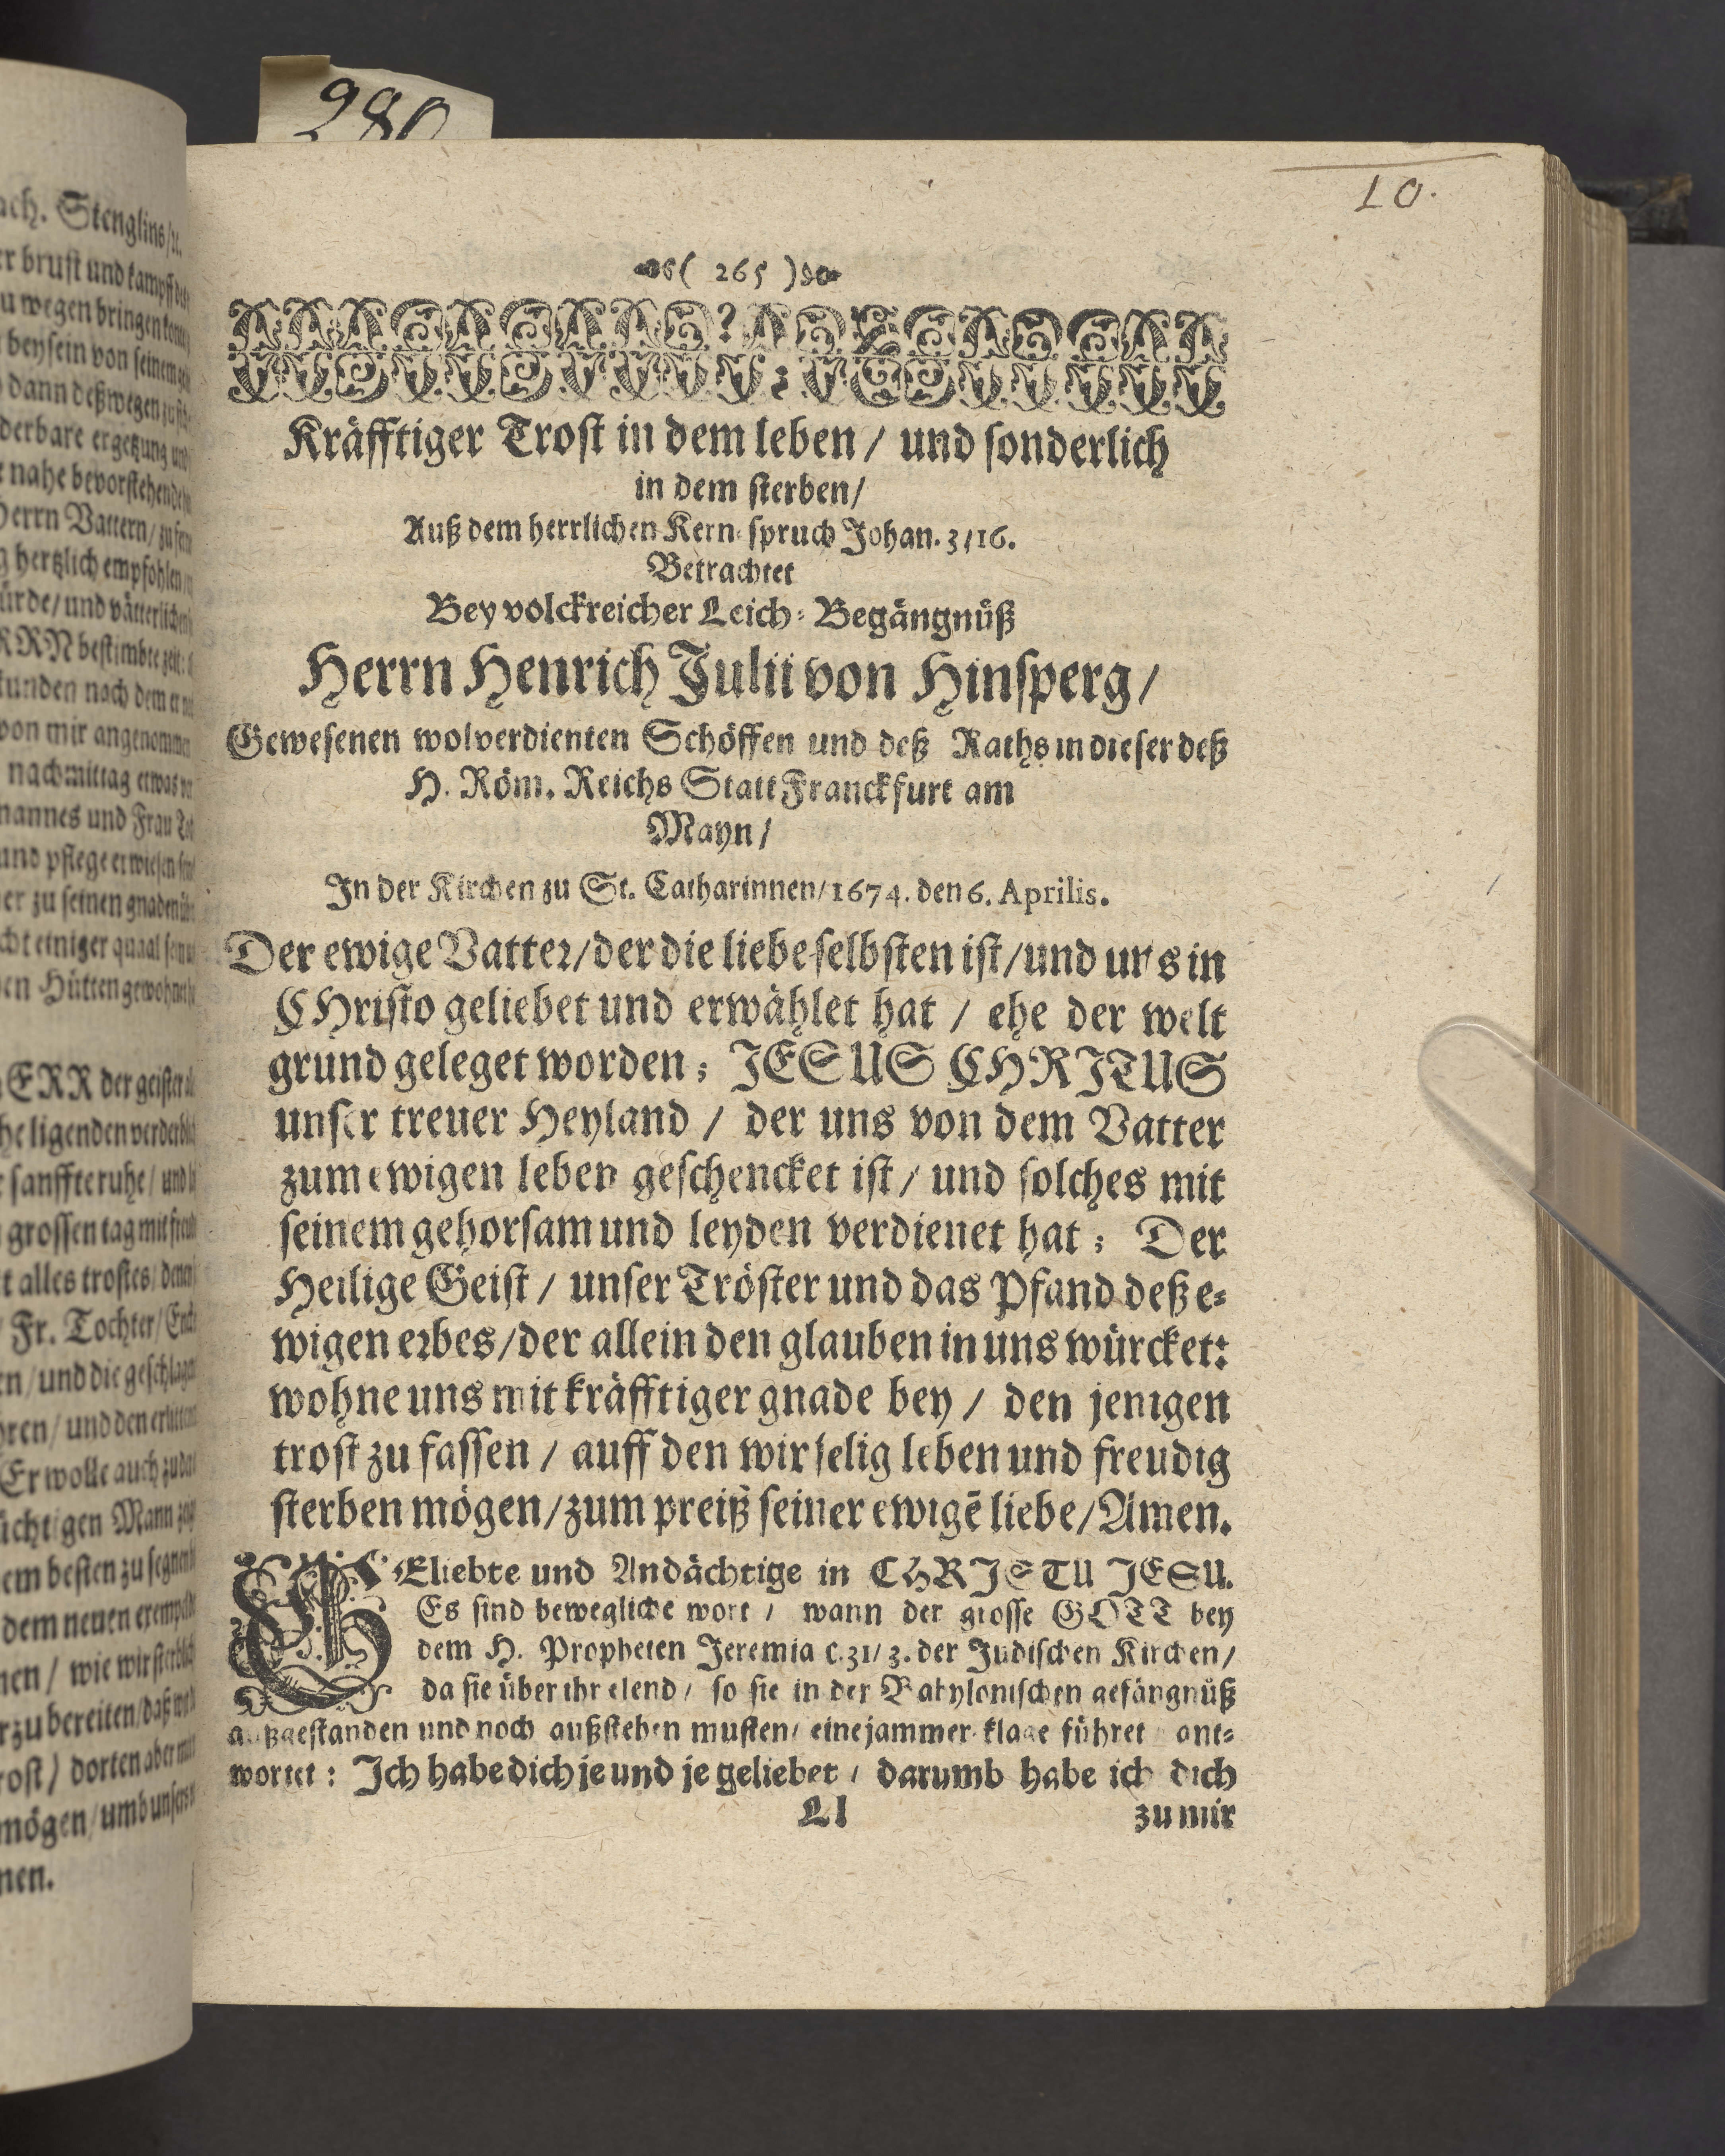 280
10.
( 265 )
Kräfftiger Trost in dem leben / und sonderlich
in dem sterben /
Auß dem herrlichen Kern-spruch Johan. 3/16.
Betrachtet
Bey volckreicher Leich-Begängnüß
Herrn Henrich Julii von Hinsperg /
Gewesenen wolverdienten Schöffen und deß Raths in dieser deß
H. Röm. Reichs Statt Franckfurt am
Mayn /
In der Kirchen zu St. Catharinnen / 1674. den 6. Aprilis.
Der ewige Vatter / der die liebe selbsten ist / und uns in
CHristo geliebet und erwählet hat / ehe der welt
grund geleget worden; JESUS CHRITUS
unser treuer Heyland / der uns von dem Vatter
zum ewigen leben geschencket ist / und solches mit
seinem gehorsam und leyden verdienet hat; Der
Heilige Geist / unser Tröster und das Pfand deß e-
wigen erbes / der allein den glauben in uns würcket:
wohne uns mit kräfftiger gnade bey / den jenigen
trost zu fassen / auff den wir selig leben und freudig
sterben mögen / zum preiß seiner ewigē liebe / Amen.
GEliebte und Andächtige in CHRISTU JESU.
Es sind bewegliche wort / wann der grosse GOTT bey
dem H. Propheten Jeremia c. 31/3. der Jüdischen Kirchen /
da sie über ihr elend / so sie in der Babylonischen gefängnüß
außgestanden und noch außstehen musten / eine jammer-klage führet ant-
wortet: Ich habe dich je und je geliebet / darumb habe ich dich
Ll
zu mir
Stenglins /
er brust und kampff
u wegen bringen
beysein von seinem
dann deßwegen
derbare ergetzung und
nahe bevorstehende
Herrn Vattern /
hertzlich empfohlen
ürde / und vätterlichen
RRN bestimbte zeit:
unden nach dem er
von mir angenommen
nachmittag etwas
mannes und Frau
und pflege erwiesen
er zu seinen gnaden
cht einiger quaal
en Hütten
ERR der geister
he ligenden
sanffte ruhe / und
grossen tag mit
t alles trostes /
Fr. Tochter /
en / und die
ren / und den
Er wolle auch
üchtigen Mann
em besten zu segnen
dem neuen exempel
nen / wie wir
r zu bereiten / daß
rost / dorten aber
mögen / umb unsers
men.